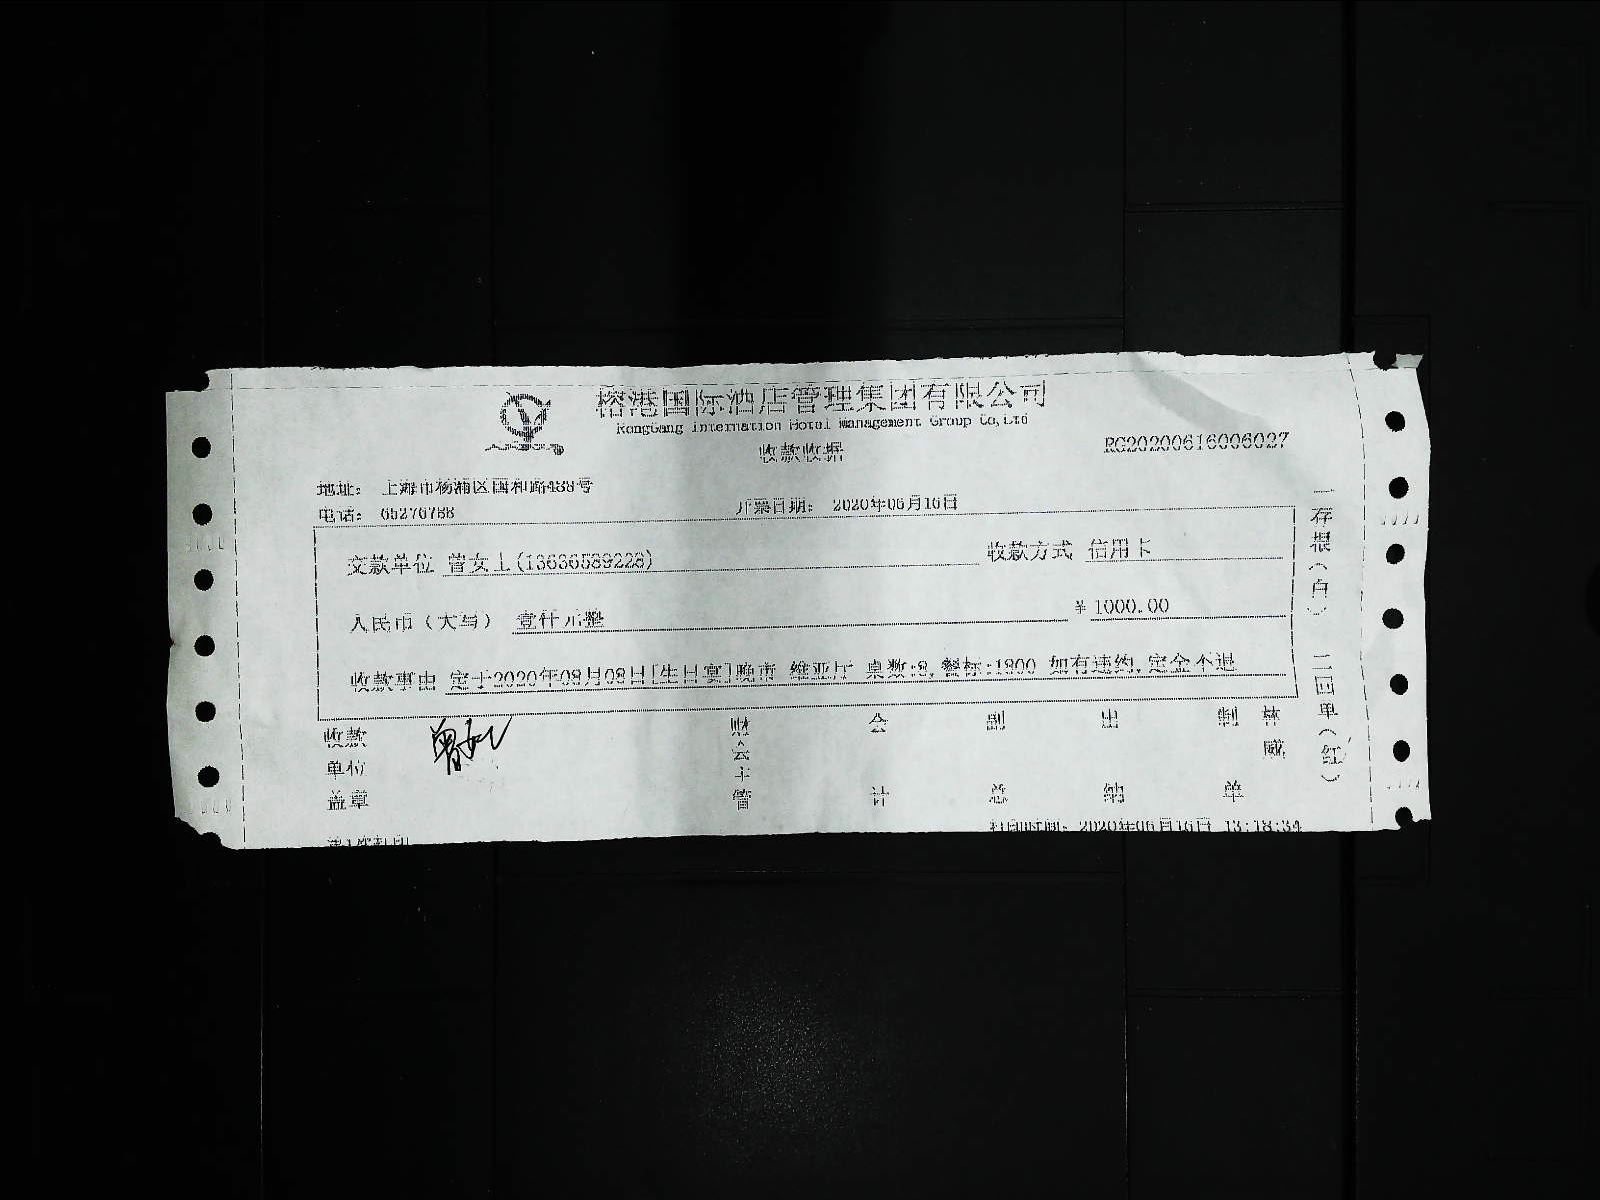 榕港国际酒店管理集团有限公司
RongGang Internation Hotel Management Group Co,Ltd
收款收据
RG20200616006027
地址: 上海市杨浦区国和路488号
电话: 65276788
开票日期: 2020年06月16日
交款单位 曾女士(13636589228)
收款方式 信用卡
人民币（大写） 壹仟元整
¥ 1000.00
收款事由 定于2020年08月08日[生日宴]晚市 维亚厅 桌数:8, 餐标:1800 如有违约,定金不退
收款单位盖章
财会主管
会计
副总
出纳
制单
林威
一存根（白） 二回单（红）
打印时间: 2020年06月16日 13:18:34
第1次打印